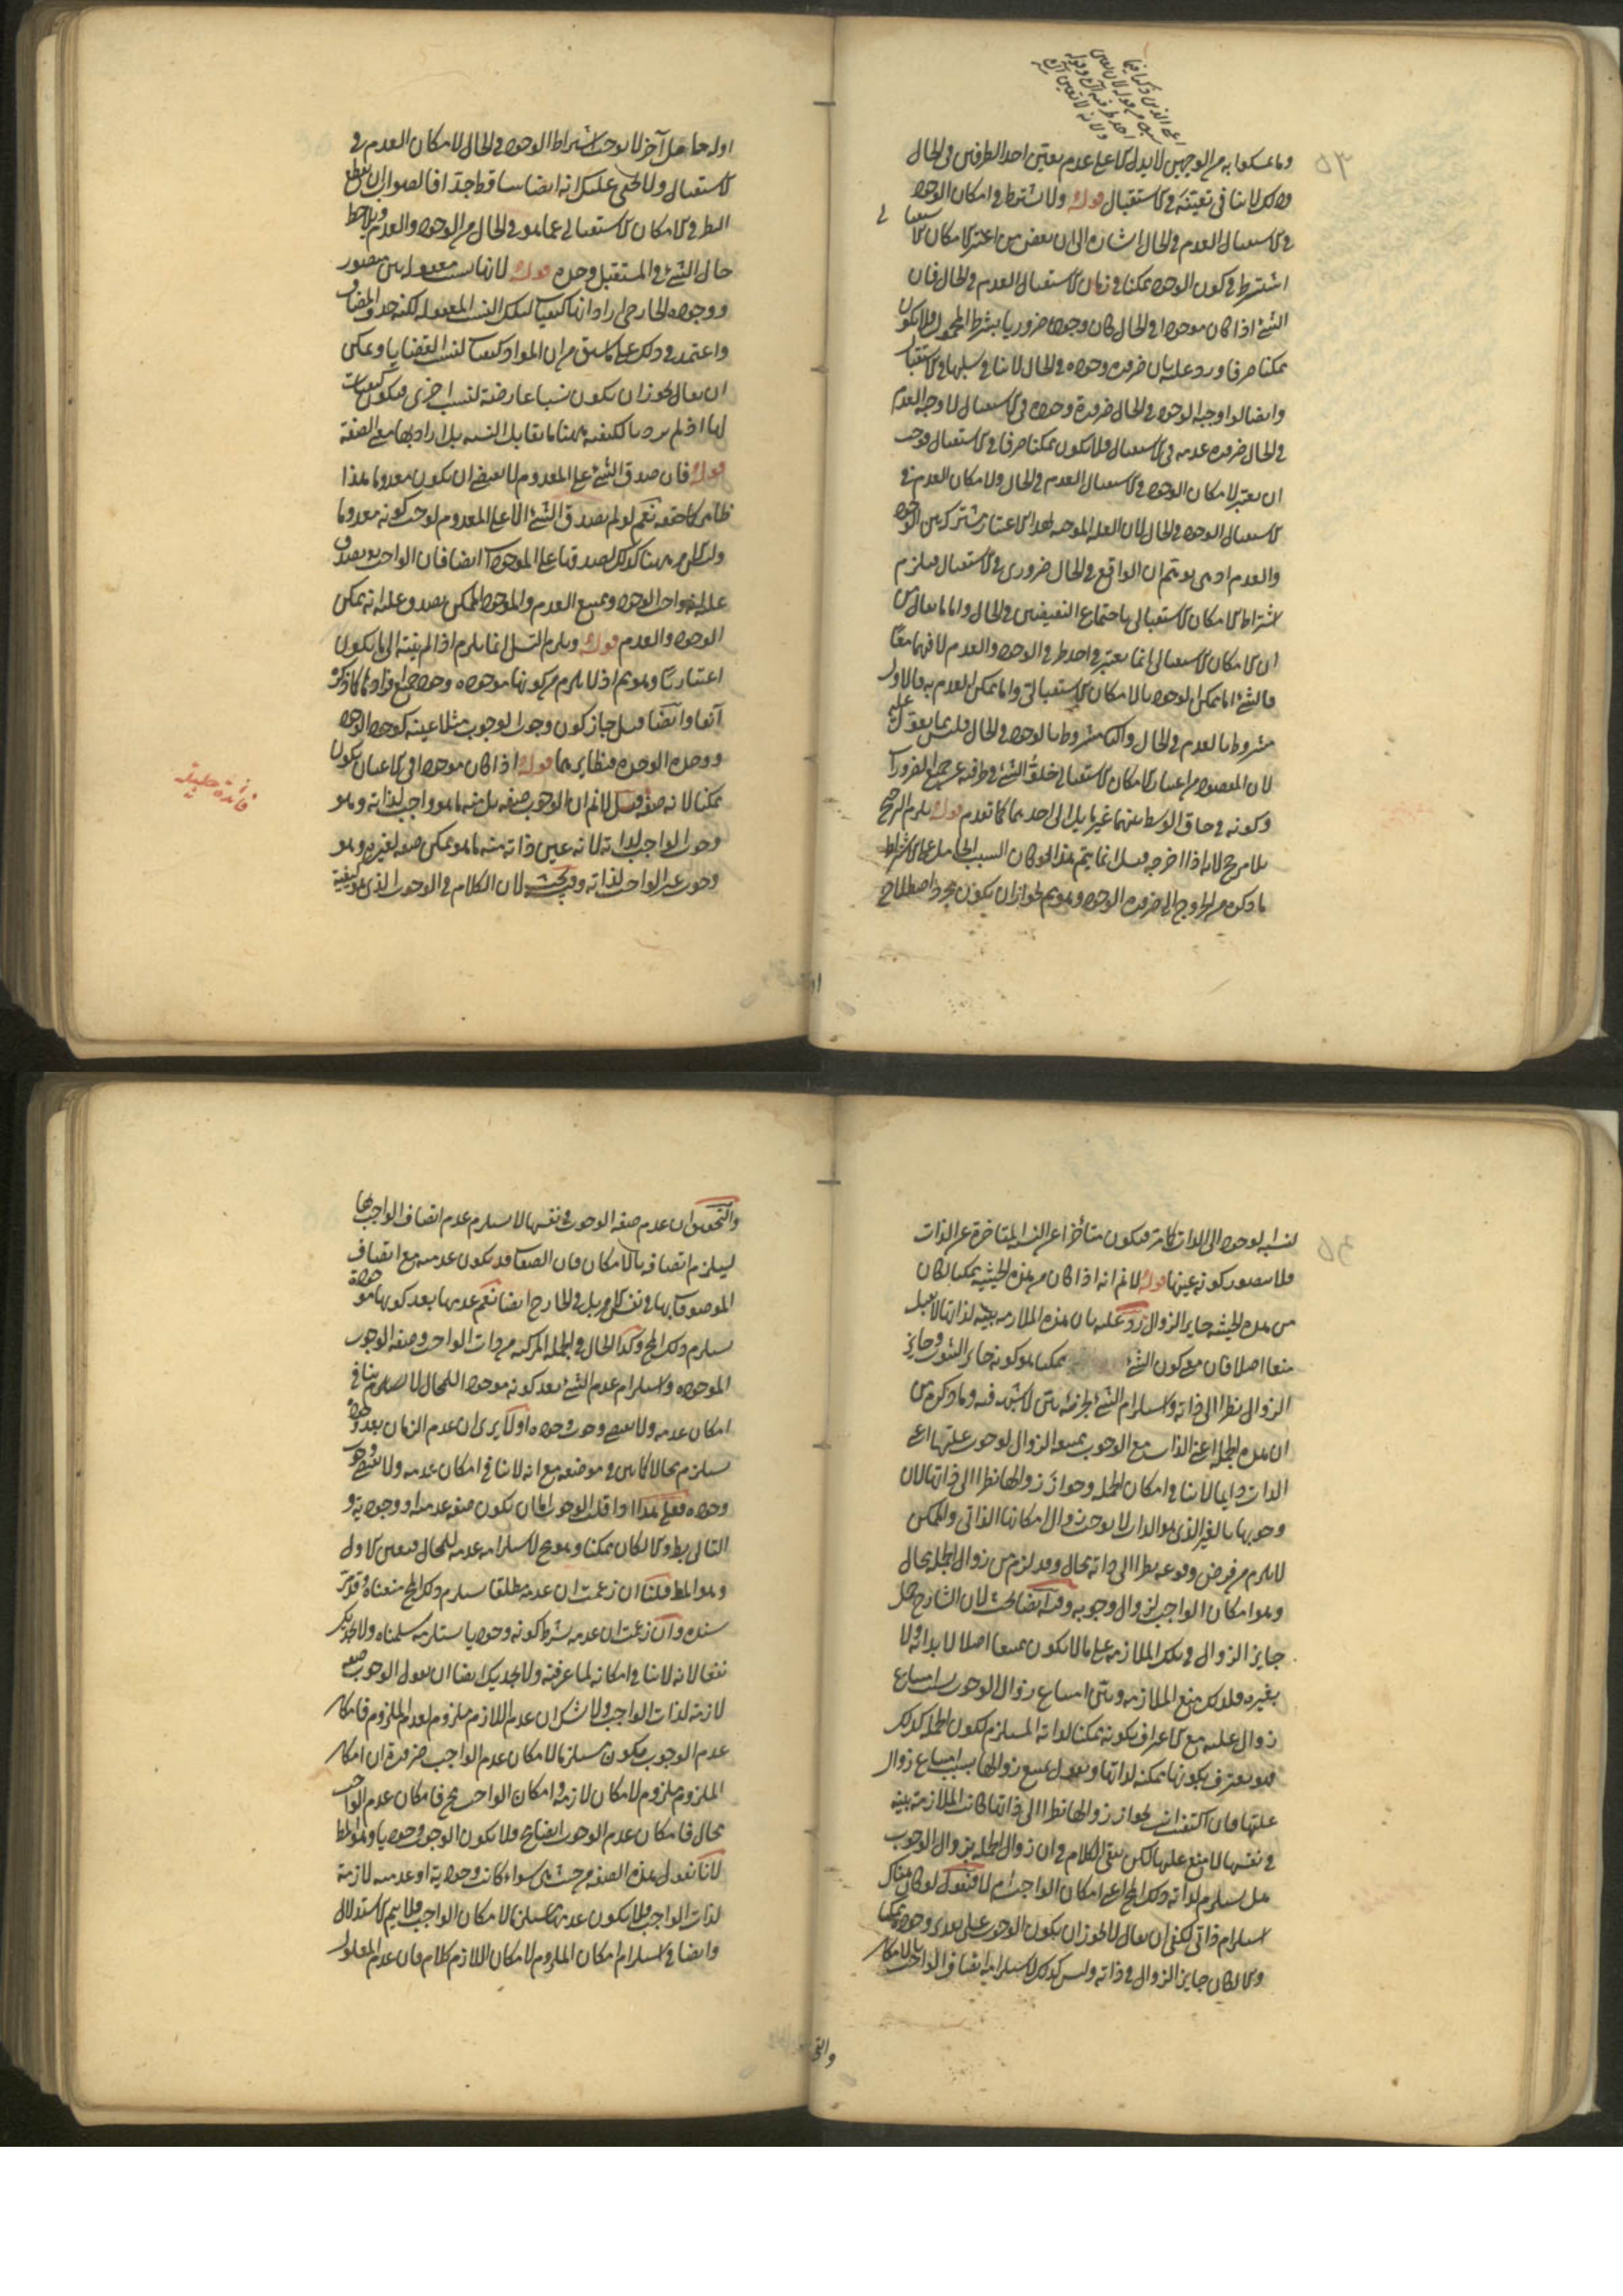 وما تمسكوا به من الوجهين لا يدل الا على عدم تعين احد الطرفين في الحال
وذلك لا ينافي تعينه في الاستقبال قوله ولا يشترط في امكان الوجود
في الاستقبال العدم في الحال اشارة الى ان بعض من اعتبر الامكان الاستقبالي
اشترط في كون الوجود ممكنا في زمان الاستقبال العدم في الحال فان
الشئ اذا كان موجودا في الحال كان وجوده ضروريا بشرط المحمول فلا يكون
ممكنا صرفا ورد عليه بان ضرورة وجوده في الحال لا ينافي سلبها في الاستقبال
وايضا لو اوجب الوجود في الحال ضرورة وجوده في الاستقبال لاوجب العدم
في الحال ضرورة عدمه في الاستقبال فلا يكون ممكنا صرفا في الاستقبال فوجب
ان يعتبر لامكان الوجود في الاستقبال العدم في الحال ولامكان العدم في
الاستقبال الوجود في الحال لان العلة الموجبة لهذا الاعتبار مشتركة بين الوجود
والعدم اذ هي توهم ان الواقع في الحال ضروري في الاستقبال فيلزم
اشتراط الامكان الاستقبالي باجتماع النقيضين في الحال واما ما يقال من
ان الامكان الاستقبالي انما يعتبر في احد طرفي الوجود والعدم لا فيهما معا
فالشئ اما ممكن الوجود بالامكان الاستقبالي واما ممكن العدم به فالاول
مشروط بالعدم في الحال والثاني مشروط بالوجود في الحال فليس بما يعول عليه
لان المقصود من اعتبار الامكان الاستقبالي خلو الشئ في طرفيه عن جميع الضرورات
وكونه في حاق الوسط بينهما غير مايل الى احدهما كما تقدم قوله يلزم الترجيح
بلا مرجح لانه اذا اخرجه قيل انما يتم هذا لو كان السبب الحامل على الاشتراط
ما ذكره من الخروج الى ضرورة الوجود وهو مم لجواز ان يكون مجرد اصطلاح
او له حامل آخر لا يوجب اشتراط الوجود في الحال لامكان العدم في
الاستقبال ولا يخفى عليك انه ايضا ساقط جدا فالصواب ان يقطع
النظر في الامكان الاستقبالي عما هو في الحال من الوجود والعدم ويلاحظ
حال الشئ في المستقبل وحده قوله لانها نسب معقولة بين متصور
ووجوده الخارجي اراد انها كيفيات لتلك النسب المعقولة لكنه حذف المضاف
واعتمد في ذلك على ما سبق من ان المواد كيفيات لنسب القضايا ويمكن
ان يقال يجوز ان يكون نسبا عارضة لنسب اخرى فيكون كيفيات
لها اذ لم يرد بالكيفية ههنا ما يقابل النسبة بل اراد بها معنى الصفة
قوله فان صدق الشئ على المعدوم لا يقتضي ان يكون معدوما هذا
ظاهر كما حققه نعم لو لم يصدق الشئ الا على المعدوم لوجب كونه معدوما
وليس الامر ههنا كذلك لصدقها على الموجود ايضا فان الواجب يصدق
عليه انه واجب الوجود وممتنع العدم والموجود الممكن يصدق عليه انه ممكن
الوجود والعدم قوله ويلزم التسلسل انما يلزم اذا لم ينته الى ما يكون
اعتباريا وهو مم اذ لا يلزم من كونها موجودة وجود جميع افرادها كما ذكره
آنفا وايضا قيل جاز كون وجوب الوجوب مثلا عينه كوجود الوجود
ووحدة الوحدة ونظايرهما قوله اذا كان موجودا في الاعيان يكون
ممكنا لانه صفة قيل لا نم ان الوجوب صفة بل منه ما هو واجب لذاته وهو
وجوب الواجب لذاته لانه عين ذاته ومنه ما هو ممكن صفة لغيره وهو
وجوب غير الواجب لذاته وفيه بحث لان الكلام في الوجوب الذي هو كيفية
فائدة جليلة
لنسبة الوجود الى الذات كما مر فيكون متأخرا عن النسبة المتأخرة عن الذات
فلا يتصور كونه عينها قوله لا نم انه اذا كان من هذه الحيثية ممكنا لكان
من هذه الحيثية جايز الزوال رد عليه بان هذه الملازمة بينة لذاتها لا تقبل
منعا اصلا فان معنى كون الشئ ممكنا هو كونه جايز الثبوت وجايز
الزوال نظرا الى ذاته واستلزام الشئ لجزئه بين لا شبهة فيه وما ذكره من
ان هذه الجملة اعني الذات مع الوجوب يمتنع الزوال لوجوب علتها اعني
الذات دايما لا ينافي امكان الجملة وجواز زوالها نظرا الى ذاتها لان
وجوبها بالغير الذي هو الذات لا يوجب زوال امكانها الذاتي والممكن
لا يلزم من فرض وقوعه نظرا الى ذاته محال وقد لزم من زوال الجملة محال
وهو امكان الواجب لزوال وجوبه وفيه ايضا بحث لان الشارح حمل
جايز الزوال في تلك الملازمة على ما لا يكون ممتنعا اصلا لا بذاته ولا
بغيره فلذلك منع الملازمة وبنى امتناع زوال الوجوب بسبب امتناع
زوال علته مع الاعتراف بكونه ممكنا لذاته المستلزم لكون الجملة كذلك
فهو يعترف بكونها ممكنة لذاتها ويقول يمتنع زوالها بسبب امتناع زوال
علتها فان اكتفيت بجواز زوالها نظرا الى ذاتها كانت الملازمة بينة
في نفسها لا منع عليها لكن يبقى الكلام في ان زوال الجملة بزوال الوجوب
هل يستلزم لذاته ذلك المحال اعني امكان الواجب ام لا فنقول لو كان هناك
استلزام ذاتي لكفى ان يقال لا يجوز ان يكون الوجوب على تقدير وجوده ممكنا
والا لكان جايز الزوال في ذاته وليس كذلك لاستلزامه اتصاف الواجب بالامكان
والتحقيق ان عدم صفة الوجوب في نفسها لا يستلزم عدم اتصاف الواجب بها
ليلزم اتصافه بالامكان فان الصفات قد يكون عدمية مع اتصاف
الموصوفات بها في نفس الامر بل في الخارج ايضا نعم عدمها بعد كونها موجودة
يستلزم ذلك المحال وكذا الحال في الجملة المركبة من ذات الواجب وصفة الوجوب
الموجودة واستلزام عدم الشئ بعد كونه موجودا للمحال لا ينافي
امكان عدمه ولا يقتضي وجوب وجوده اولا يرى ان عدم الزمان بعد وجوده
يستلزم محالا كما بين في موضعه مع انه لا ينافي امكان عدمه ولا يقتضي وجوب
وجوده فعلى هذا اذا قلت الوجوب اما ان يكون صفة عدمية او وجودية و
الثاني بط والا لكان ممكنا وهو مح لاستلزامه عدمه للمحال فتعين الاول
وهو المط قلنا ان زعمت ان عدمه مطلقا يستلزم ذلك المحال منعناه وقد مر
سنده وان زعمت ان عدمه بشرط كونه وجوديا يستلزمه سلمناه ولا يجديك
نفعا لانه لا ينافي امكانه لما عرفته ولا يجديك ايضا ان تقول الوجوب صفة
لازمة لذات الواجب ولا شك ان عدم اللازم ملزوم لعدم الملزوم فامكان
عدم الوجوب يكون مستلزما لامكان عدم الواجب ضرورة ان امكان
الملزوم ملزوم لامكان لازمه وامكان الواجب مح فامكان عدم الواجب
محال فامكان عدم الوجوب ايضا مح فلا يكون الوجوب وجوديا وهو المط
لانا نقول هذه الصفة من حيث هي سواء كانت وجودية او عدمية لازمة
لذات الواجب فلا يكون عدمها مستلزما لامكان الواجب فلا يتم الاستدلال
وايضا في استلزام امكان الملزوم لامكان اللازم كلام فان عدم المعلول